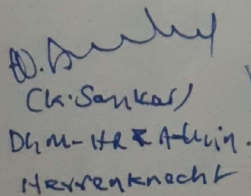 (K. Sankar)
DGM-HR & Admin.
Herrenknecht